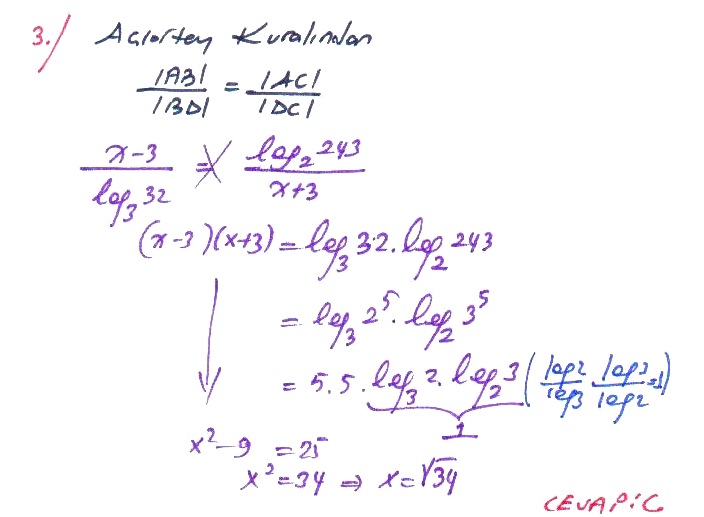 3./ Açıortay Kuralından
|AB|/|BD| = |AC|/|DC|
x-3/log₃32 = log₂243/x+3
(x-3)(x+3) = log₃32.log₂243
= log₃2⁵.log₂3⁵
= 5.5.log₃2.log₂3 (log2/log3 log3/log2 =1)
1
x²-9 = 25
x²=34 ⇒ x=√34
CEVAP:C